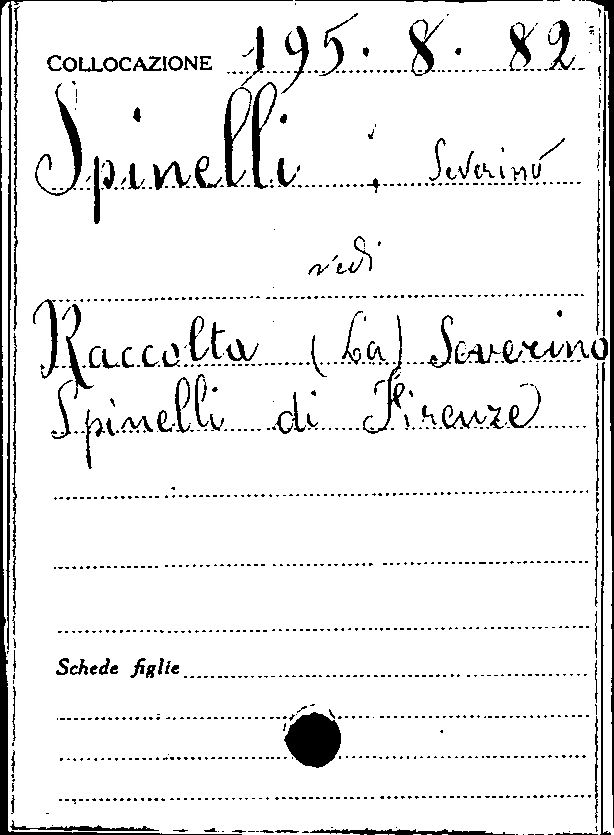 COLLOCAZIONE 195. 8. 82
Spinelli : Severino
vedi
Raccolta (La) Severino
Spinelli di Firenze
Schede figlie